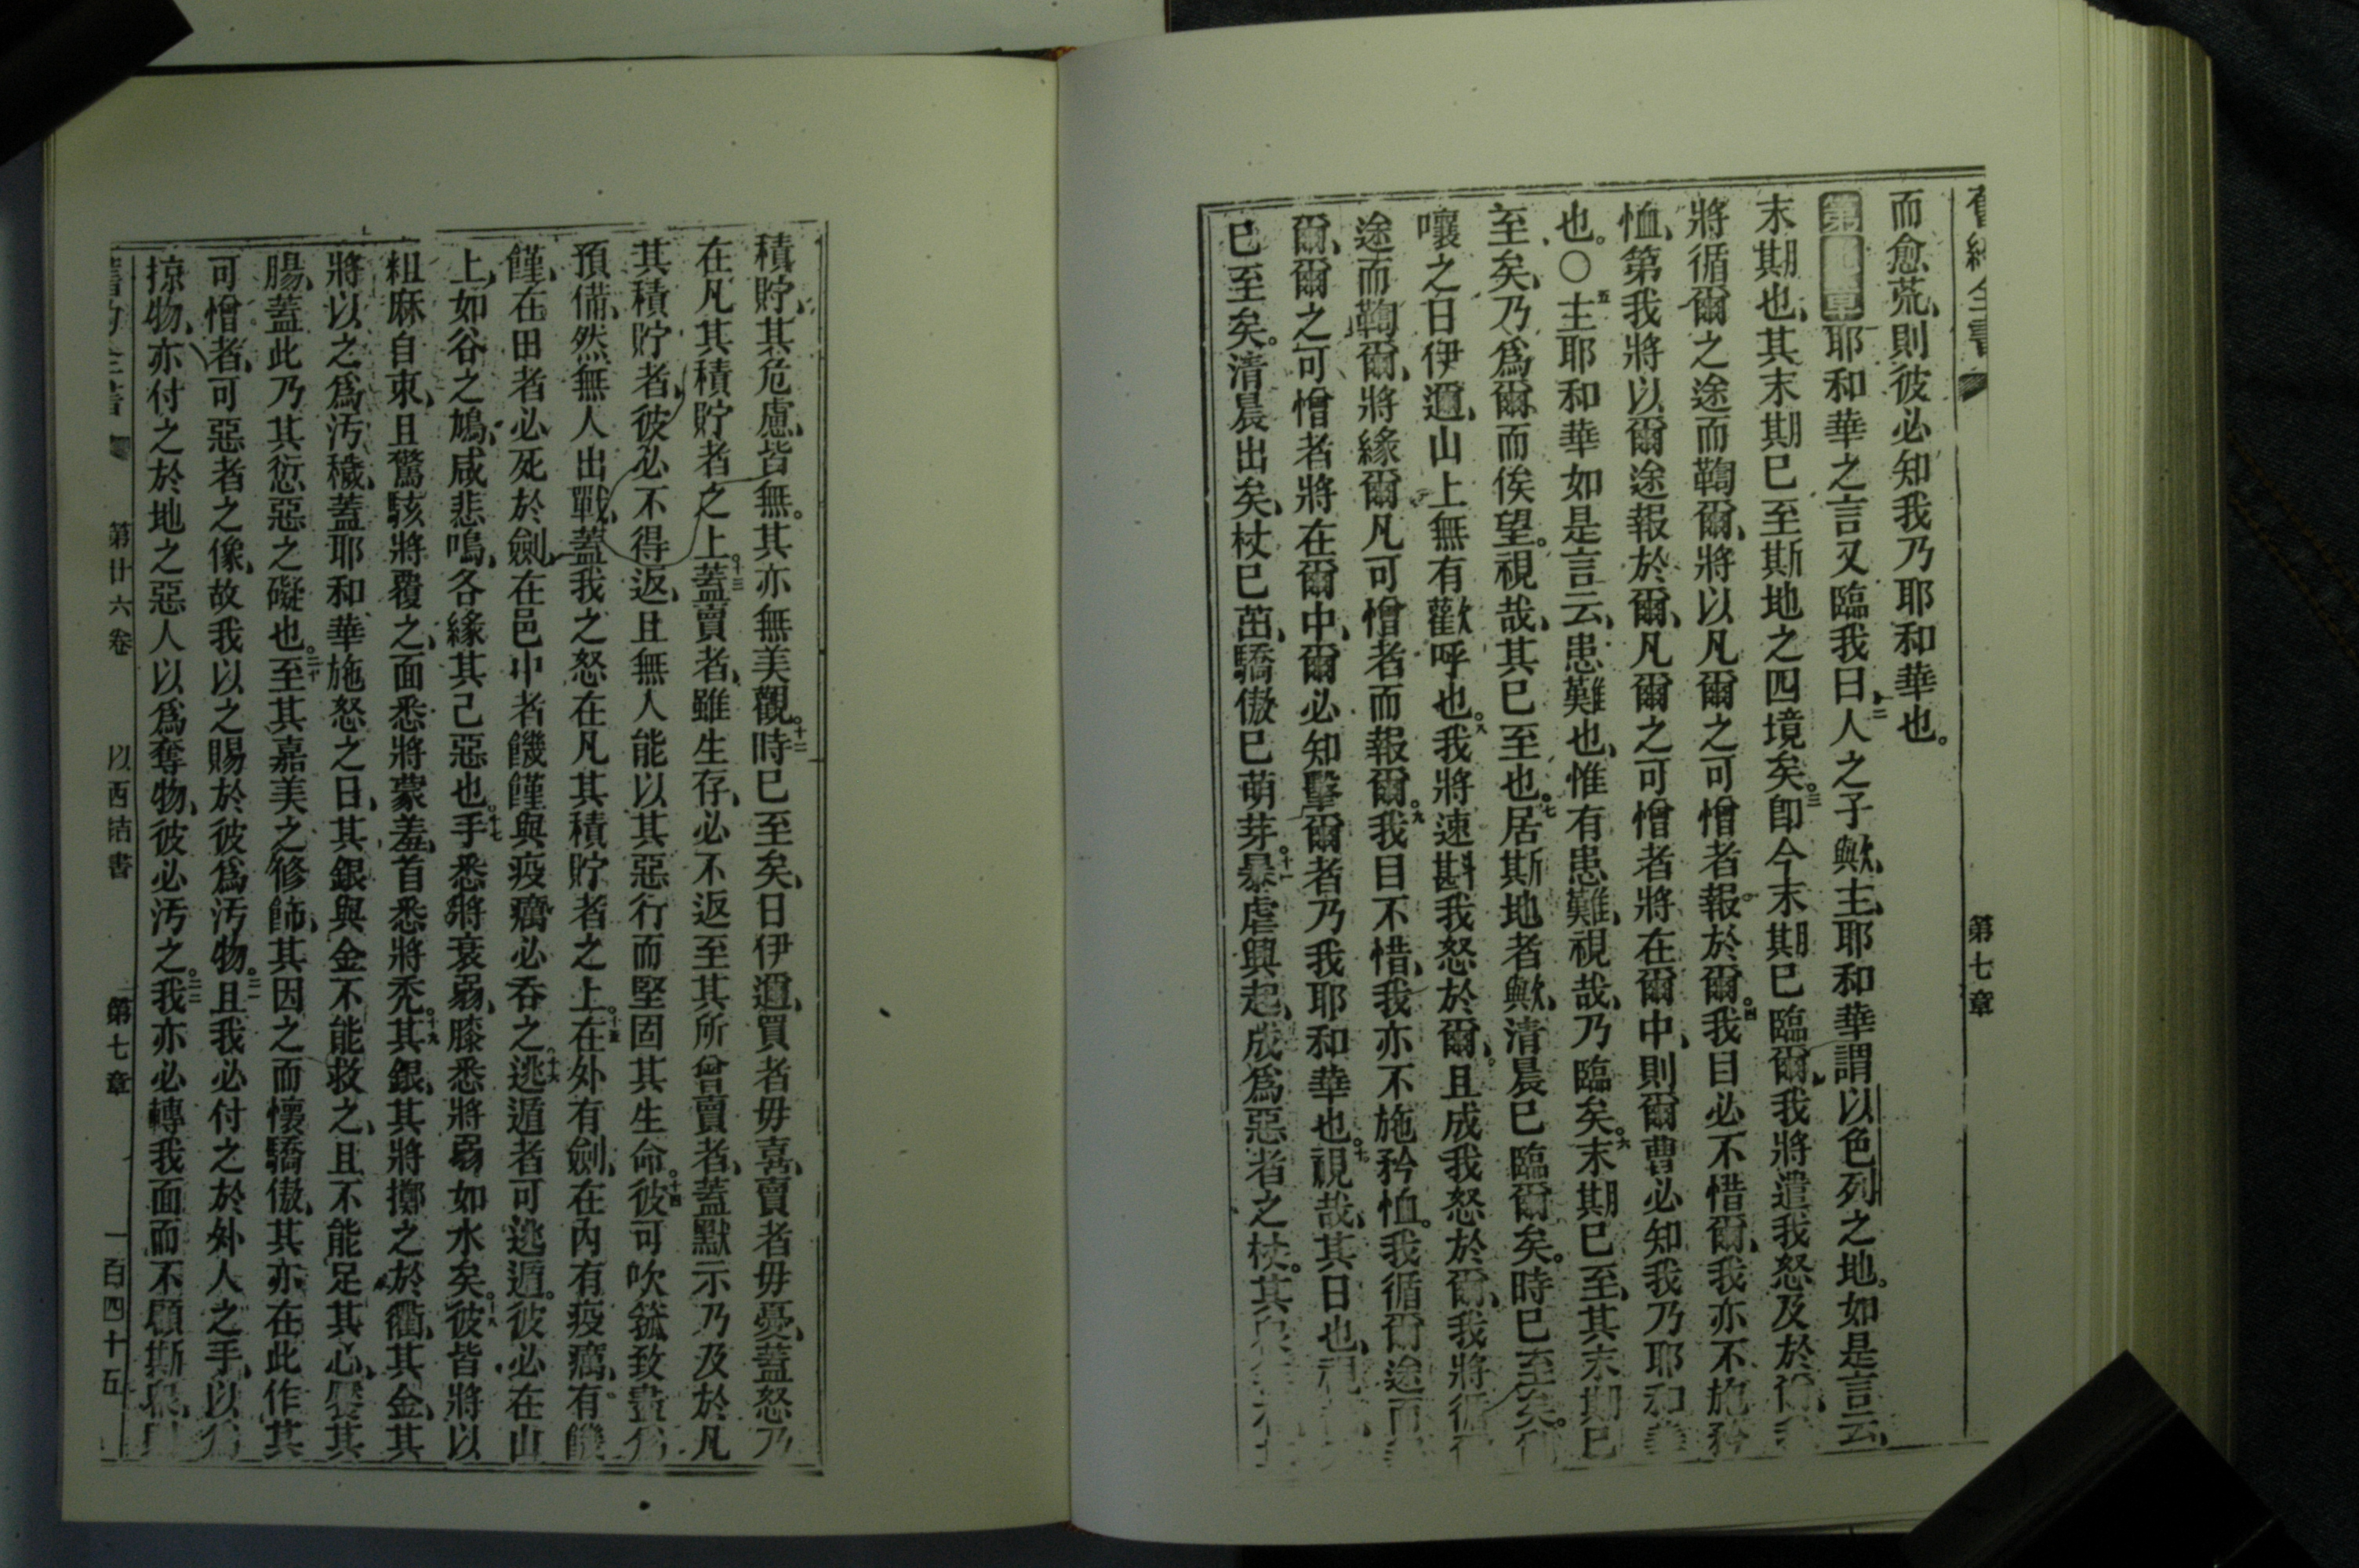 舊約全書 第七章
而愈荒、則彼必知我乃耶和華也。
第七章耶和華之言又臨我曰、二人之子歟、主耶和華謂以色列之地。如是言云、
末期也、其末期巳至斯地之四境矣。三卽今末期巳臨爾、我將遣我怒及於爾、
將循爾之途而鞫爾、將以凡爾之可憎者報於爾。四我目必不惜爾、我亦不施矜
恤、第我將以爾途報於爾、凡爾之可憎者將在爾中、則爾曹必知我乃耶和華
也。○五主耶和華如是言云、患難也、惟有患難、視哉、乃臨矣。六末期巳至、其末期巳
至矣、乃爲爾而俟望。視哉、其巳至也。七居斯地者歟、清晨巳臨爾矣。時巳至矣。
嚷之日伊邇、山上無有歡呼也。八我將速斟我怒於爾、且成我怒於爾、我將循
途而鞫爾、將緣爾凡可憎者而報爾。九我目不惜、我亦不施矜恤。我循爾途而
爾、爾之可憎者將在爾中、爾必知擊爾者乃我耶和華也。十視哉、其日也、視
巳至矣。清晨出矣、杖巳茁、驕傲巳萌芽。十一暴虐興起、成爲惡者之杖。其
積貯、其危慮、皆無。其亦無美觀。十二時巳至矣、日伊邇、買者毋喜、賣者毋憂、蓋怒乃
在凡其積貯者之上。十三蓋賣者、雖生存、必不返至其所曾賣者、蓋默示乃及於凡
其積貯者、彼必不得返、且無人能以其惡行而堅固其生命。十四彼可吹箛致盡爲
預備、然無人出戰、蓋我之怒在凡其積貯者之上。十五在外有劍、在內有疫癘、有饑
饉、在田者必死於劍、在邑中者饑饉與疫癘必吞之。十六逃遁者可逃遁。彼必在山
上、如谷之鳩、咸悲鳴、各緣其己惡也。十七手悉將衰弱、膝悉將弱如水矣。十八彼皆將以
粗麻自束、且驚駭將覆之、面悉將蒙羞、首悉將禿。十九其銀、其將擲之於衢、其金、其
將以之爲汚穢、蓋耶和華施怒之日、其銀與金不能救之、且不能足其心、饜其
腸、蓋此乃其愆惡之礙也。二十至其嘉美之修飾、其因之而懷驕傲、其亦在此作其
可憎者、可惡者之像、故我以之賜於彼爲汚物。二一且我必付之於外人之手、以爲
掠物、亦付之於地之惡人以爲奪物、彼必汚之。二二我亦必轉我面而不顧斯民、則
舊約全書 第廿六卷 以西結書 第七章 一百四十五